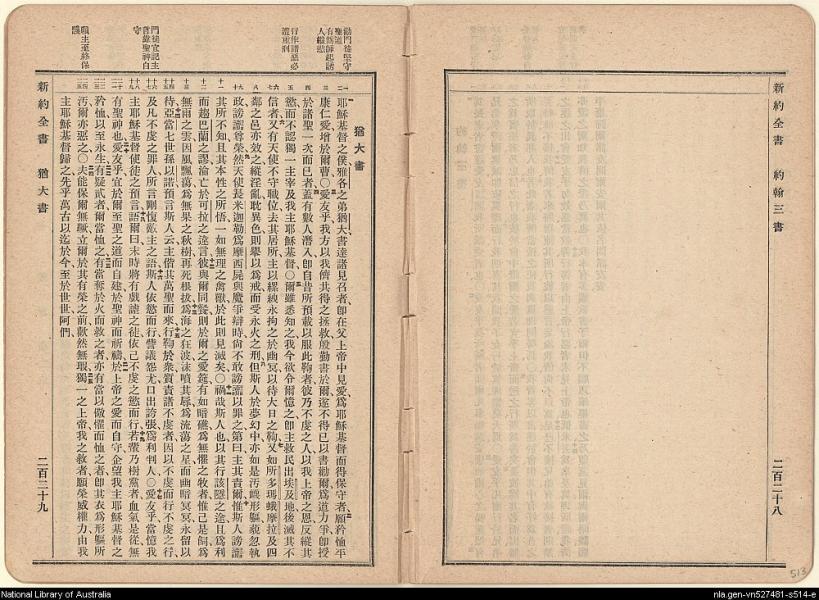 新約全書　約翰三書
二百二十八
勸門徒堅守
聖道
有爲師起誘
人縱慾
行作諸惡必
遭重刑
門徒宜記主
當賴聖神自
守
賴主至終保
護
猶大書
耶穌基督之僕雅各之弟猶大書達諸見召者卽在父上帝中見愛爲耶穌基督而得保守者願矜恤平
康仁愛增於爾曹〇愛友乎我方以我儕共得之拯救殷勤書於爾遂不得已以書勸爾爲道力爭卽授
於諸聖一次而已者蓋有數人潛入卽自昔所預載以服此鞫者彼乃不虔之人以我上帝之恩反縱其
慾而不認獨一主宰及我主耶穌基督〇爾雖悉知之我今欲令爾憶之卽主救民出埃及地後滅其不
信者又有天使不守職位去其居所主以縲絏永拘之於幽冥以待大日之鞫又如所多瑪蛾摩拉及四
鄰之邑亦效之縱淫亂耽異色則舉以爲戒而受永火之刑但斯人於夢幻中亦如是汚衊形軀藐忽執
政謗讟尊榮然天使長米迦勒爲摩西屍與魔爭辯時尙不敢謗讟以罪之第曰主其責爾惟斯人謗讟
其所不知且其本性之所悟一如無理之禽獸於此則見滅矣〇禍哉斯人也以其行該隱之途且爲利
而趨巴蘭之謬淪亡於可拉之逆言彼與爾同餐則於爾之愛筵有如暗礁爲無懼之牧者惟己是飼爲
無雨之雲因風飄蕩爲無果之秋樹再死根拔爲海之狂波沫噴其辱爲流蕩之星而幽暗冥冥永留以
待亞當七世孫以諾預言斯人云主偕其萬聖而來行鞫於衆質責諸不虔者因以不虔而行不虔之行
及凡不虔之罪人所言剛愎敵主之語斯人依慾而行訾議怨尤口出誇張爲利判人〇愛友乎當憶我
主耶穌基督使徒之預言語爾曰末時將有戲謔之徒依己不虔之慾而行若輩乃樹黨者血氣是從無
有聖神也愛友乎宜於爾至聖之道而自建於聖神而祈禱於上帝之愛而自守企望我主耶穌基督之
矜恤以至永生有疑貳者爾當恤之有當奪於火而救之者亦有當以儆懼而恤之者卽其衣爲形軀所
汚爾亦惡之〇夫能保爾無蹶立爾於其有榮之前歡然無瑕獨一之上帝我之救者願榮威權力由我
主耶穌基督歸之先乎萬古以迄於今至於世世阿們
新約全書　猶大書
二百二十九
513
National Library of Australia
nla.gen-vn527481-s514-e